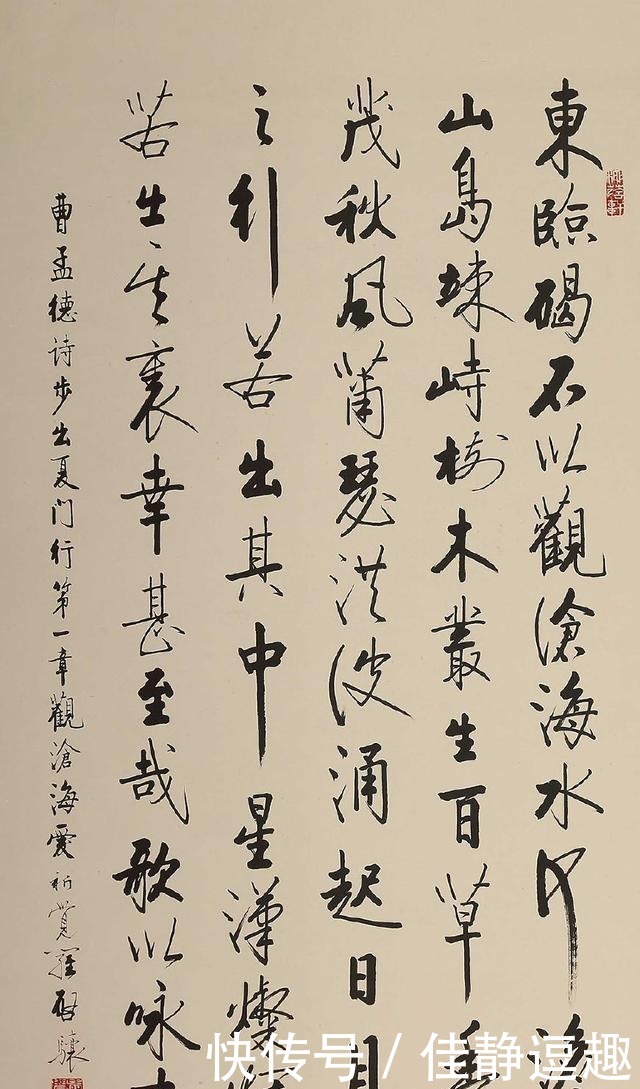 東臨碣石以觀滄海水何澹
山島竦峙樹木叢生百草豐
茂秋風蕭瑟洪波涌起日月
之行若出其中星漢燦
若出其裏幸甚至哉歌以咏
曹孟德诗步出夏门行第一章觀滄海愛新覺羅啓驤
快传号/佳静逗趣